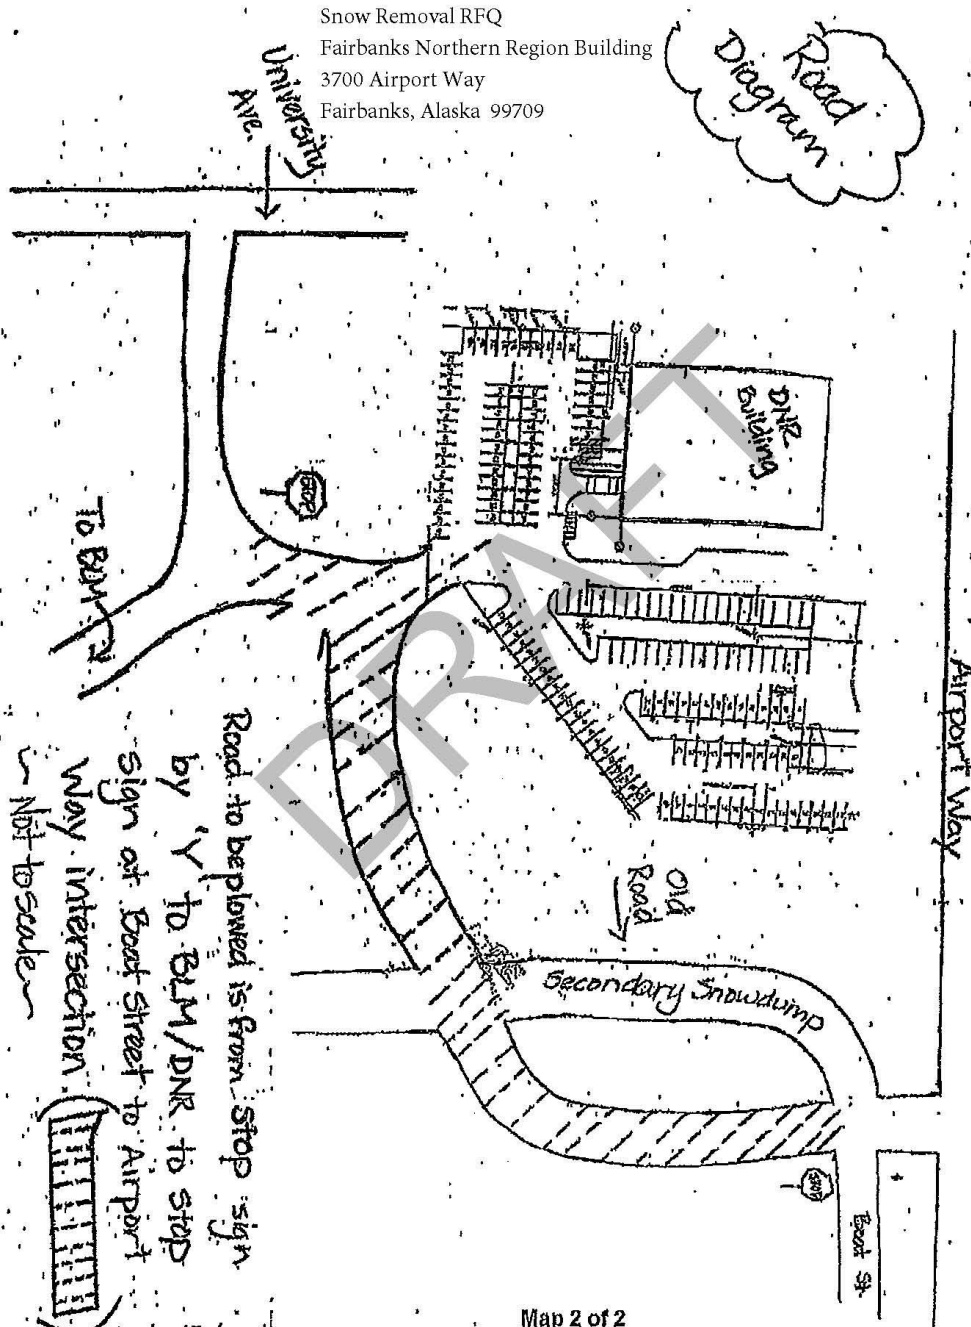 Snow Removal RFQ
Fairbanks Northern Region Building
3700 Airport Way
Fairbanks, Alaska 99709
Road
Diagram
University
Ave.
DNR
Building
STOP
To BLM
Airport Way
Old
Road
Secondary Snowdump
STOP
Boat St.
Road to be plowed is from Stop sign
by 'Y' to BLM/DNR to Stop
sign at Boat Street to Airport
Way intersection.
~ Not to scale ~
DRAFT
Map 2 of 2